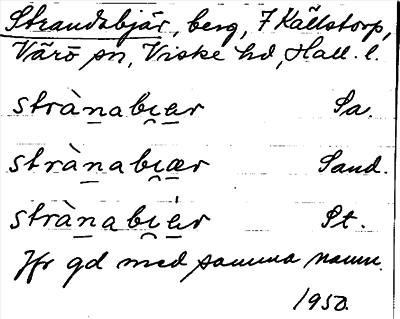 Strandsbjär, berg, 7 Källstorp,
Värö sn, Viske hd, Hall. l.
strànabi̯er Sa.
strànabi̯ær Sand.
strànabi̯ér St.
Jfr gd med samma namn.
1950.